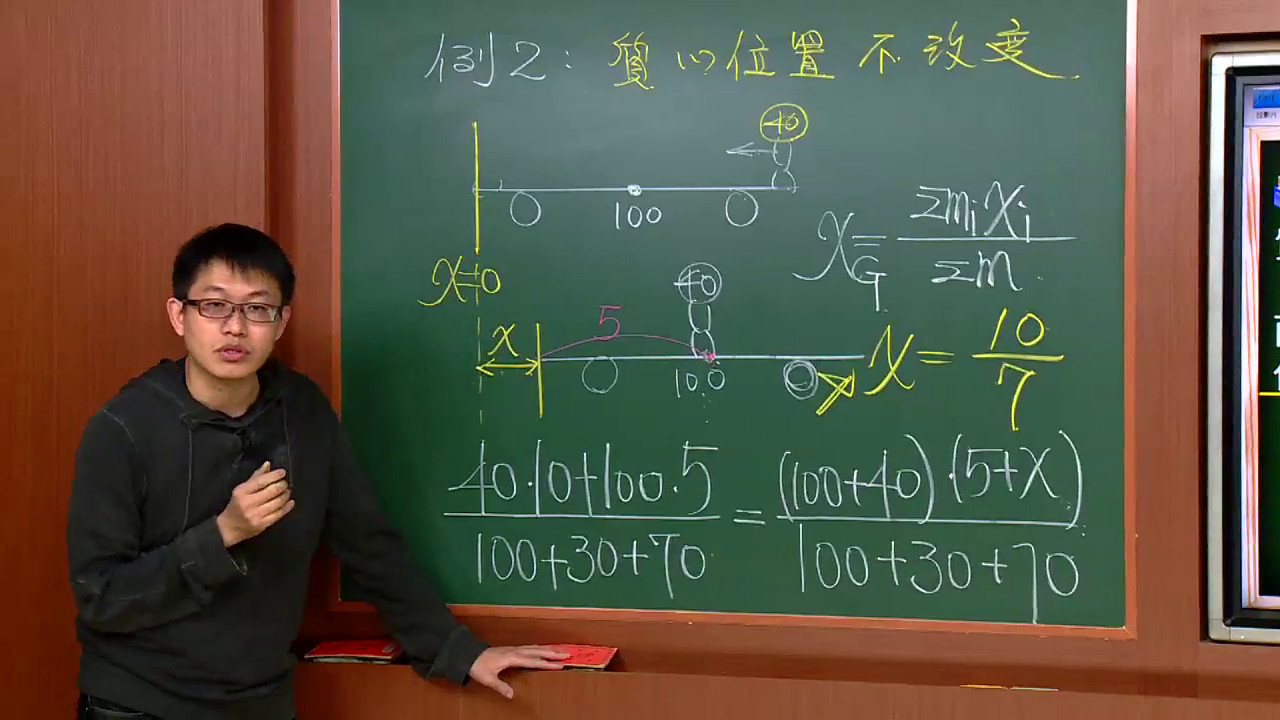 例2: 質心位置不改变
40
100
x=0
x_G = Σm_i x_i / Σm
40
5
x
100
x = 10/7
(40·10+100·5)/(100+30+70) = ((100+40)·(5+x))/(100+30+70)